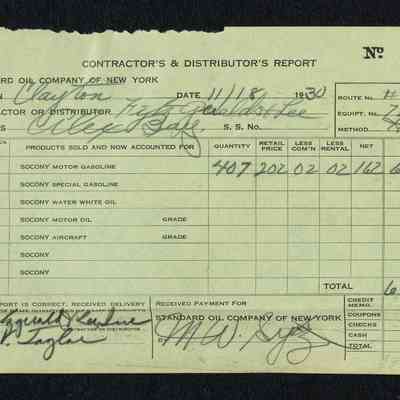 CONTRACTOR'S & DISTRIBUTOR'S REPORT Nº
ARD OIL COMPANY OF NEW YORK
N Clayton DATE 11/18 1930 ROUTE No.
ACTOR OR DISTRIBUTOR Fitzgerald & Lee EQUIPT. No. 7
S Alex Bay. S. S. No. METHOD
PRODUCTS SOLD AND NOW ACCOUNTED FOR QUANTITY RETAIL PRICE LESS COM'N LESS RENTAL NET
SOCONY MOTOR GASOLINE 407 202 02 02 162 6
SOCONY SPECIAL GASOLINE
SOCONY WATER WHITE OIL
SOCONY MOTOR OIL GRADE
SOCONY AIRCRAFT GRADE
SOCONY
SOCONY
TOTAL 6
PORT IS CORRECT, RECEIVED DELIVERY RECEIVED PAYMENT FOR CREDIT MEMO.
STANDARD OIL COMPANY OF NEW YORK COUPONS
CHECKS
CASH
TOTAL
Taylor M. W.